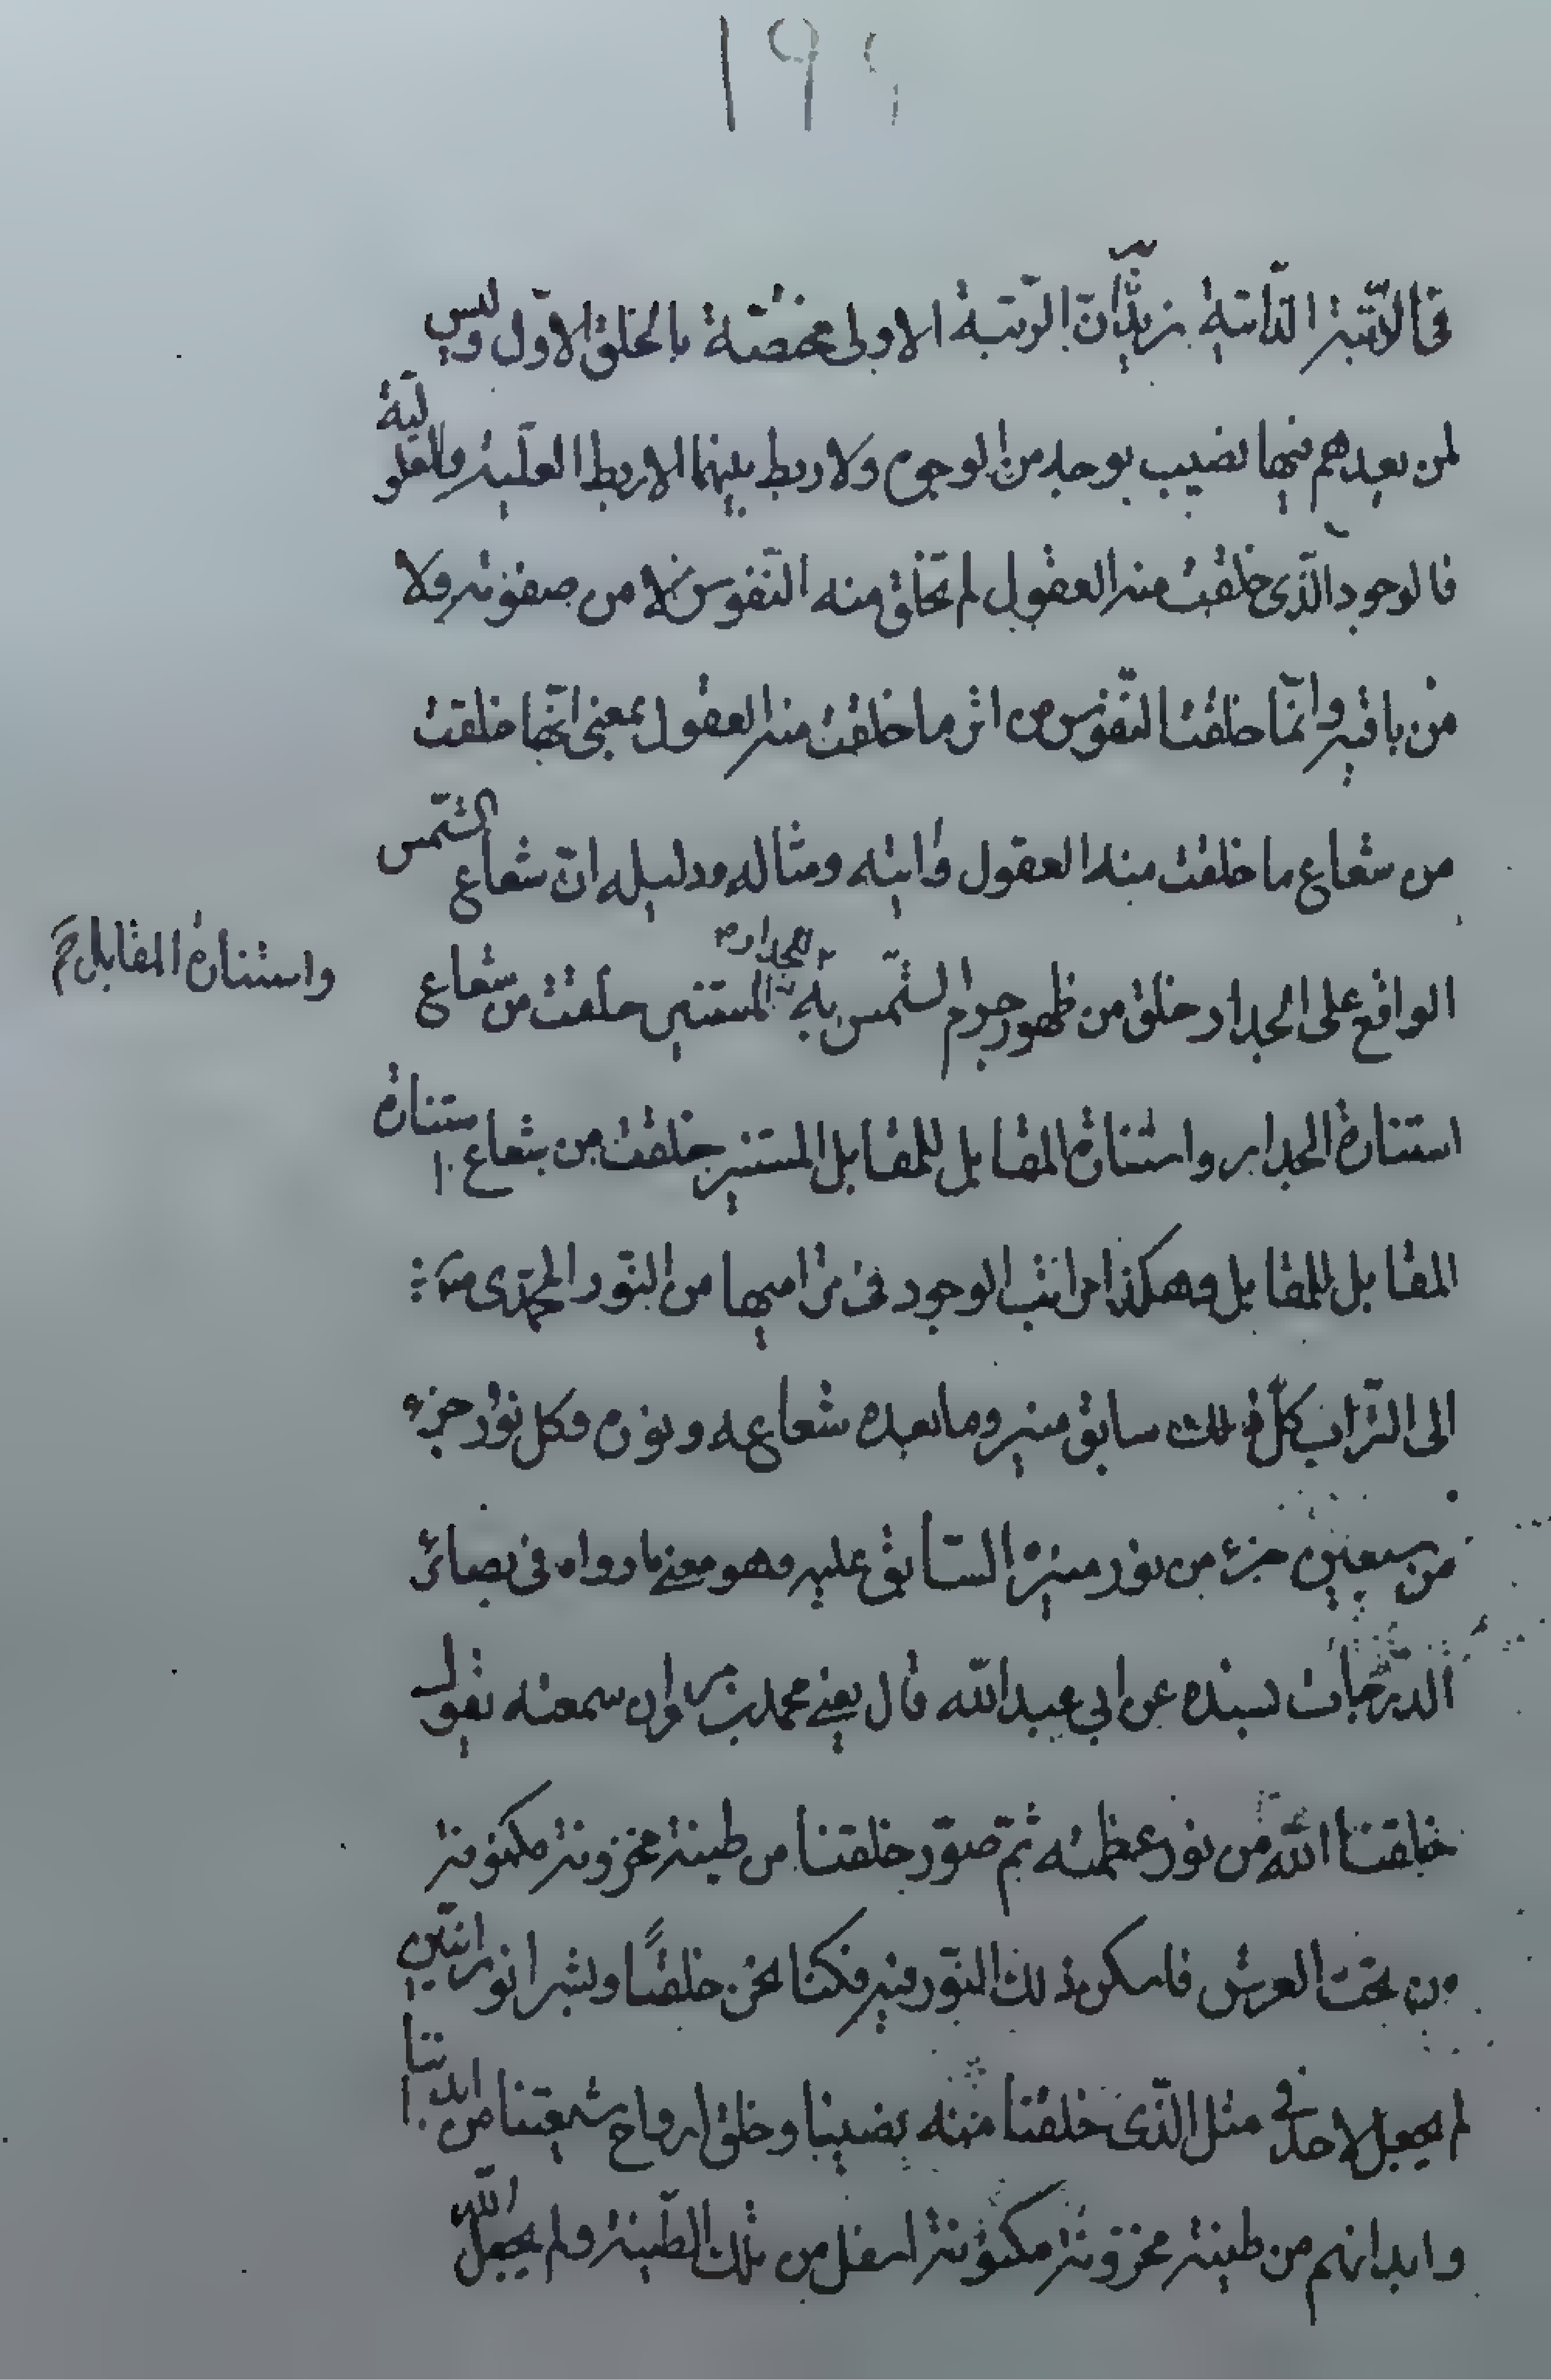 ١٩٩
في الرتبة الذاتية نريد انّ الرّتبة الاولى مختصّة بالخلق الاوّل وليس
لمن بعدهم فيها نصيب بوجه من الوجوه ولا ربط بينهما الا ربط العلّية والمعلولیّة
فالوجود الّذى خلقت منه العقول لم تخلق منه النّفوس لا من صفوته ولا
من باقيه وانّما خلقت النّفوس من اثر ما خلقت منه العقول بمعنى انّها خلقت
من شعاع ما خلقت منه العقول وايته ومثاله ودليله انّ شعاع الشّمس
الواقع على الجدار خلق من ظهور جرم الشّمس به للجدار المستنير خلقت من شعاع
واستنارة المقابل
استنارة الجدار واستنارة المقابل للمقابل المستنير خلقت من شعاع استنارة
المقابل للمقابل وهكذا مراتب الوجود فى تراميها من النّور المحمّدى ص
الى التّراب كلّ ذلك سابق منير وما بعده شعاعه ونوره وكل نور جزء
من سبعين جزء من نور منيره السّابق عليه وهو معنى ما رواه فى بصائر
الدّرجات بسنده عن ابي عبد الله قال يعنى محمد بن مروان سمعته يقول
خلقنا اللّه من نور عظمته ثمّ صوّر خلقنا من طينة مخزونة مكنونة
من تحت العرش فاسكن ذلك النّور فيه فكنّا نحن خلقًا وبشرا نورانيّين
لم يجعل لاحد فى مثل الّذى خلقنا منه نصيبا وخلق ارواح شيعتنا من ابداننا
وابدانهم من طينة مخزونة مكنونة اسفل من تلك الطّينة ولم يجعل اللّه